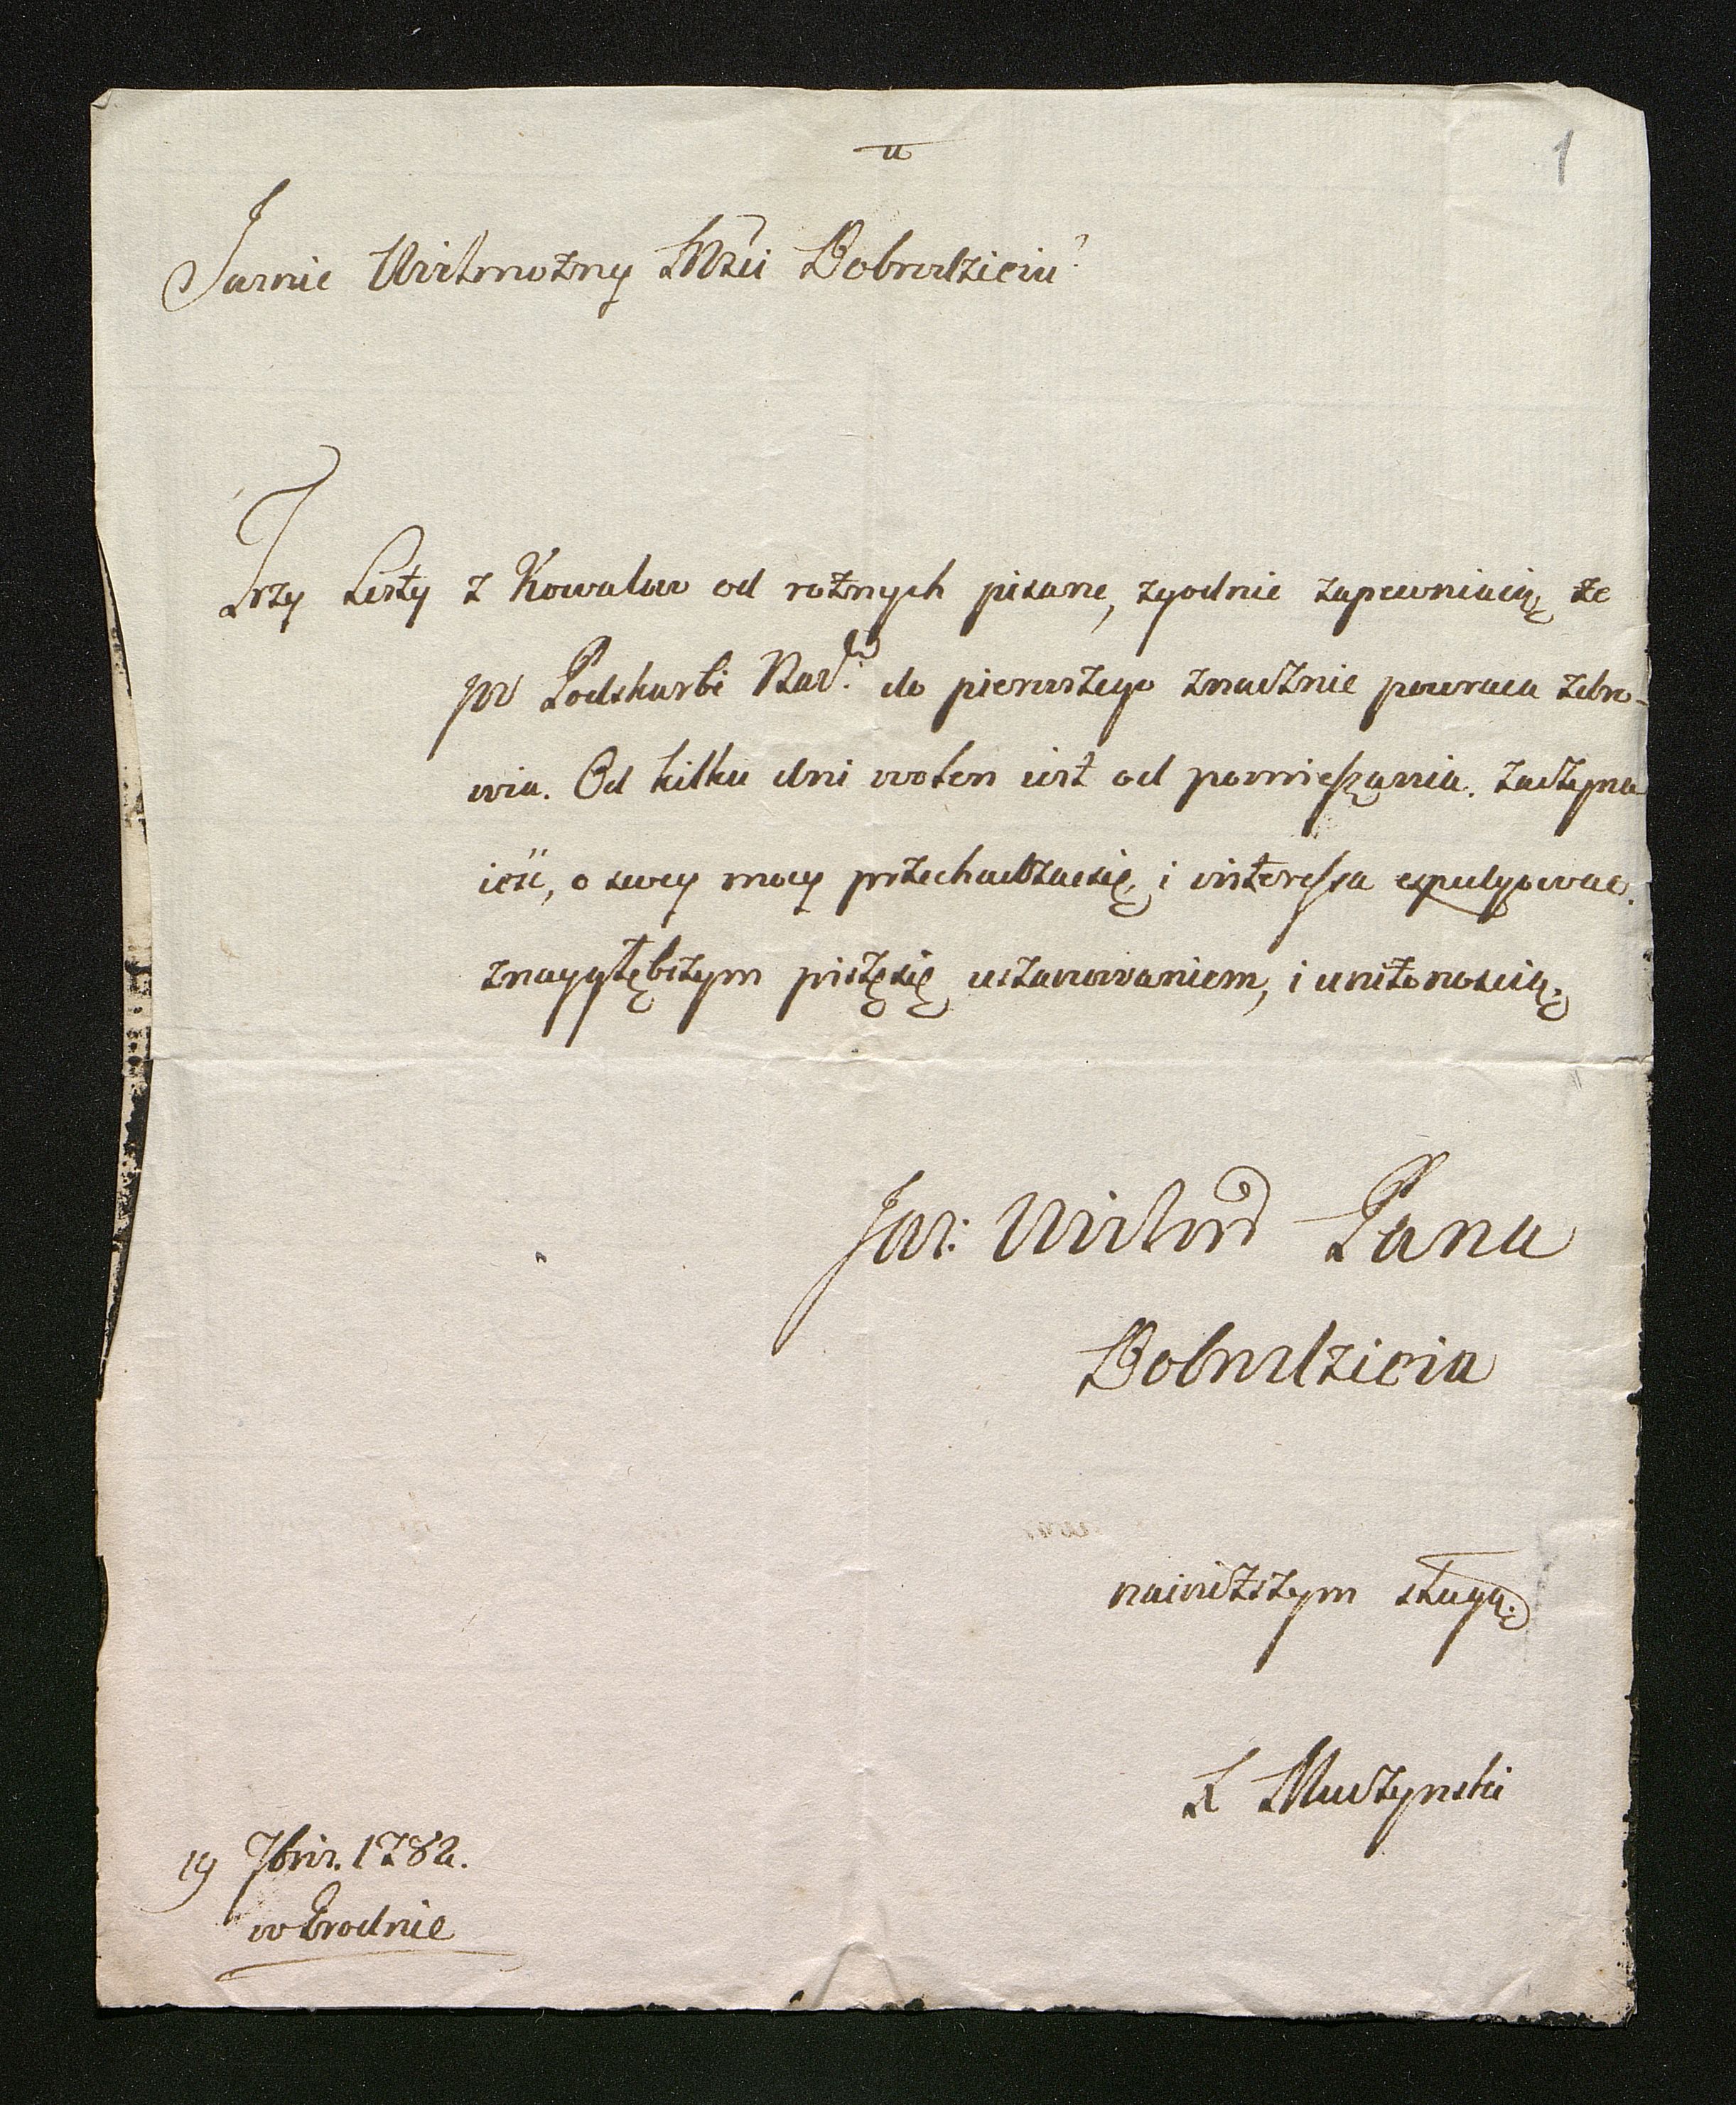 1
Jasnie Wielmożny Mści Dobrodzieiu
Trzy Listy z Kowalow od rożnych pisane, zgodnie zapewniaią że
jw Podskarbi Nad. do pierwszego znacznie powraca zdro-
wia. Od kilku dni wolen iest od pomięszania. zaczyna
ieść, o swey mocy przechadzacsię, i interessa expedyowac.
znaygłębszym piszęsię uszanowaniem, i uniżonoscią.
Jas: Wielmo Pana
Dobrodzieia
nainiższym sługą.
Muszynski
19 7bris. 1782.
w Grodnie